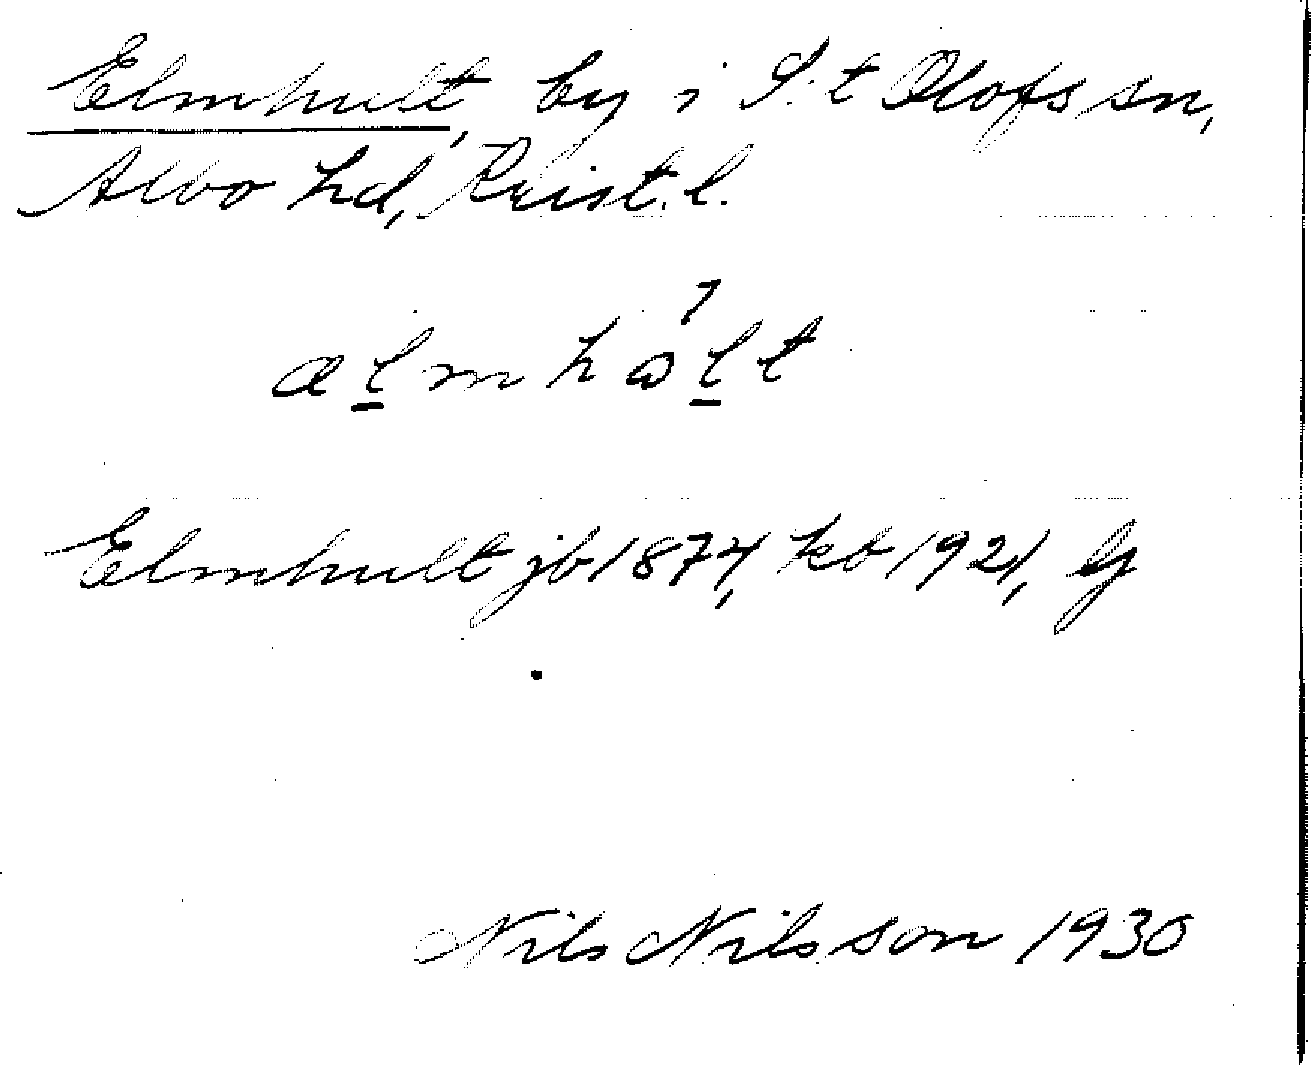 Elmhult, by i S:t Olofs sn,
Albo hd, Krist. l.
ælmhωlt
Elmhult jb 1874, kb 1921,
Nils Nilsson 1930